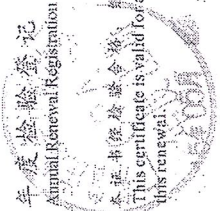 年度检验登记
Annual Renewal Registration
本证书经检验合格,
This certificate is valid for a
this renewal.